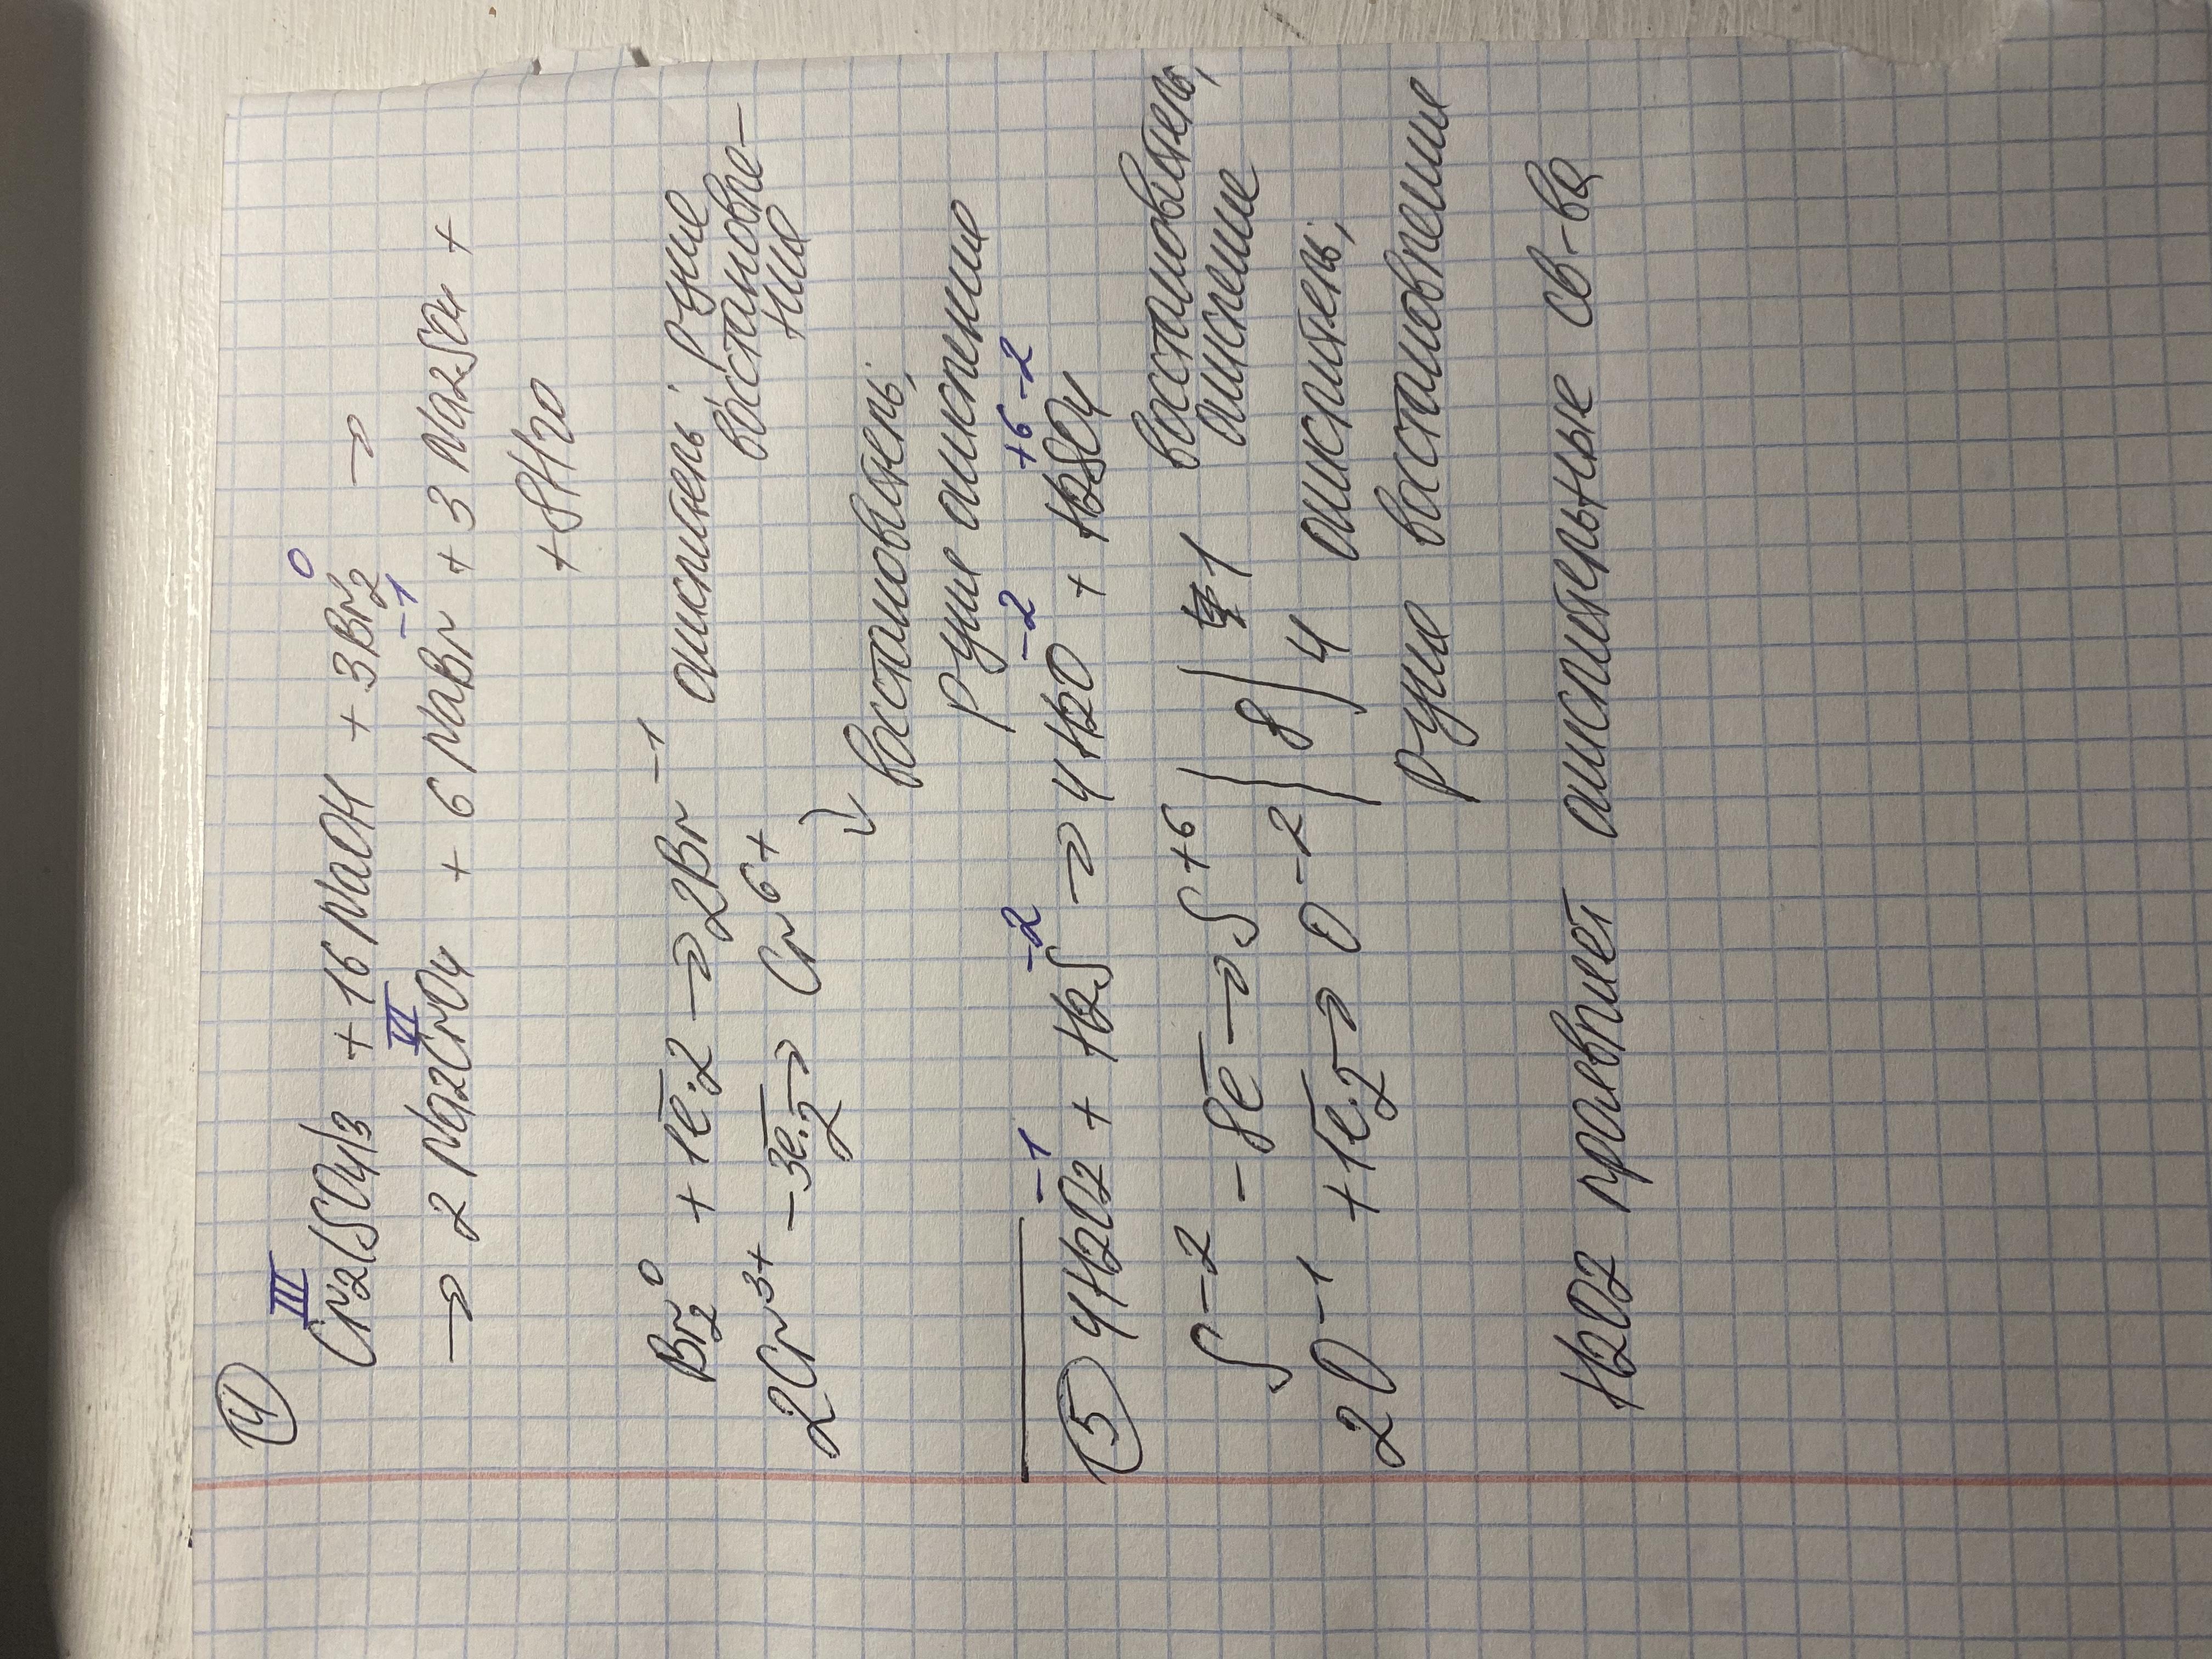 4
III 0
Cr2(SO4)3 + 16 NaOH + 3Br2 →
VI -1
→ 2 Na2CrO4 + 6 NaBr + 3 Na2SO4 +
+ 8H2O
Br2 0 + 1e·2 → 2Br -1 окислитель; р-уние
восстановле-
ние
2Cr 3+ -3e·2 → Cr 6+
восстановитель;
р-уние окисление
-1 -2 -2 +6 -2
5 4H2O2 + H2S → 4H2O + H2SO4
S -2 - 8e → S +6 | 8 | 1 восстановитель,
окисление
2O -1 +1e·2 → O -2 | | 4 окислитель;
р-уние восстановление
H2O2 проявляет окислительные св-ва